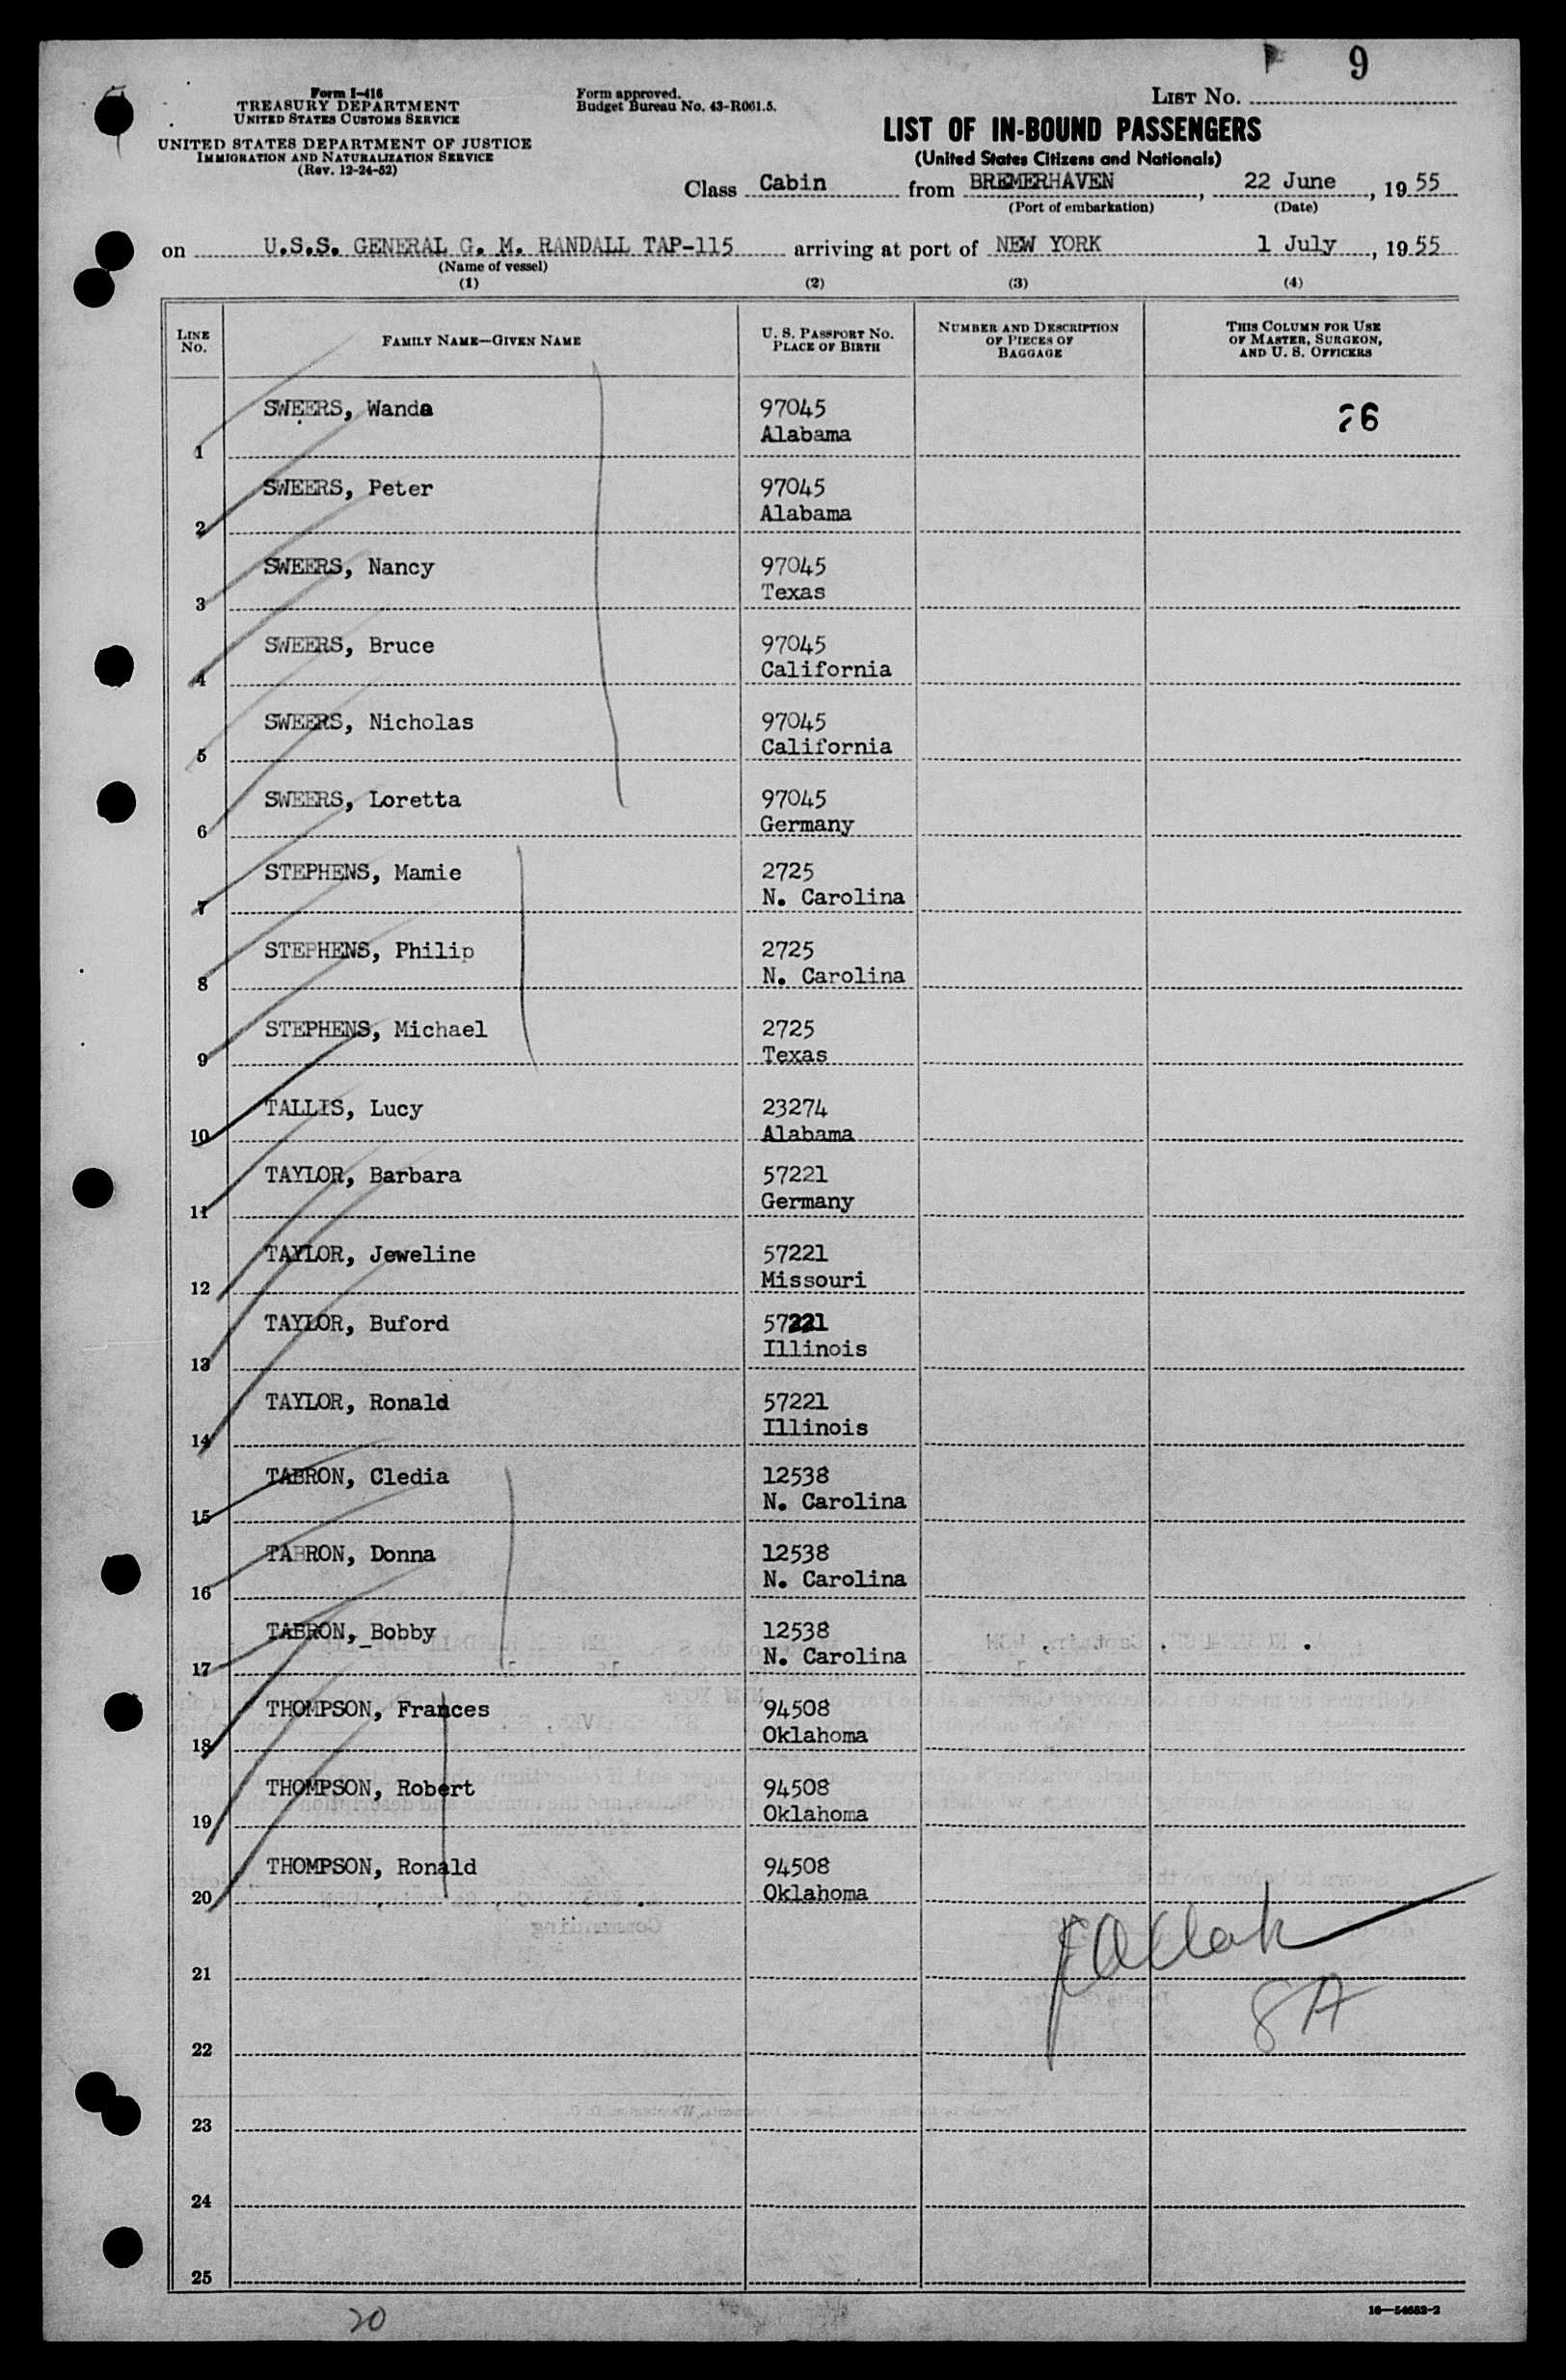 9
Form I-416
TREASURY DEPARTMENT
UNITED STATES CUSTOMS SERVICE
UNITED STATES DEPARTMENT OF JUSTICE
IMMIGRATION AND NATURALIZATION SERVICE
(Rev. 12-24-52)
Form approved.
Budget Bureau No. 43-R061.5.
LIST NO.
LIST OF IN-BOUND PASSENGERS
(United States Citizens and Nationals)
Class Cabin from BREMERHAVEN, 22 June, 1955
(Port of embarkation) (Date)
on U.S.S. GENERAL G. M. RANDALL TAP-115 arriving at port of NEW YORK 1 July, 1955
(Name of vessel)
(1) (2) (3) (4)
LINE NO. FAMILY NAME—GIVEN NAME U. S. PASSPORT NO. PLACE OF BIRTH NUMBER AND DESCRIPTION OF PIECES OF BAGGAGE THIS COLUMN FOR USE OF MASTER, SURGEON, AND U. S. OFFICERS
1 SWEERS, Wanda 97045 26
Alabama
2 SWEERS, Peter 97045
Alabama
3 SWEERS, Nancy 97045
Texas
4 SWEERS, Bruce 97045
California
5 SWEERS, Nicholas 97045
California
6 SWEERS, Loretta 97045
Germany
7 STEPHENS, Mamie 2725
N. Carolina
8 STEPHENS, Philip 2725
N. Carolina
9 STEPHENS, Michael 2725
Texas
10 TALLIS, Lucy 23274
Alabama
11 TAYLOR, Barbara 57221
Germany
12 TAYLOR, Jeweline 57221
Missouri
13 TAYLOR, Buford 57221
Illinois
14 TAYLOR, Ronald 57221
Illinois
15 TABRON, Cledia 12538
N. Carolina
16 TABRON, Donna 12538
N. Carolina
17 TABRON, Bobby 12538
N. Carolina
18 THOMPSON, Frances 94508
Oklahoma
19 THOMPSON, Robert 94508
Oklahoma
20 THOMPSON, Ronald 94508
Oklahoma
21
8A
22
23
24
25
20
16—54652-2